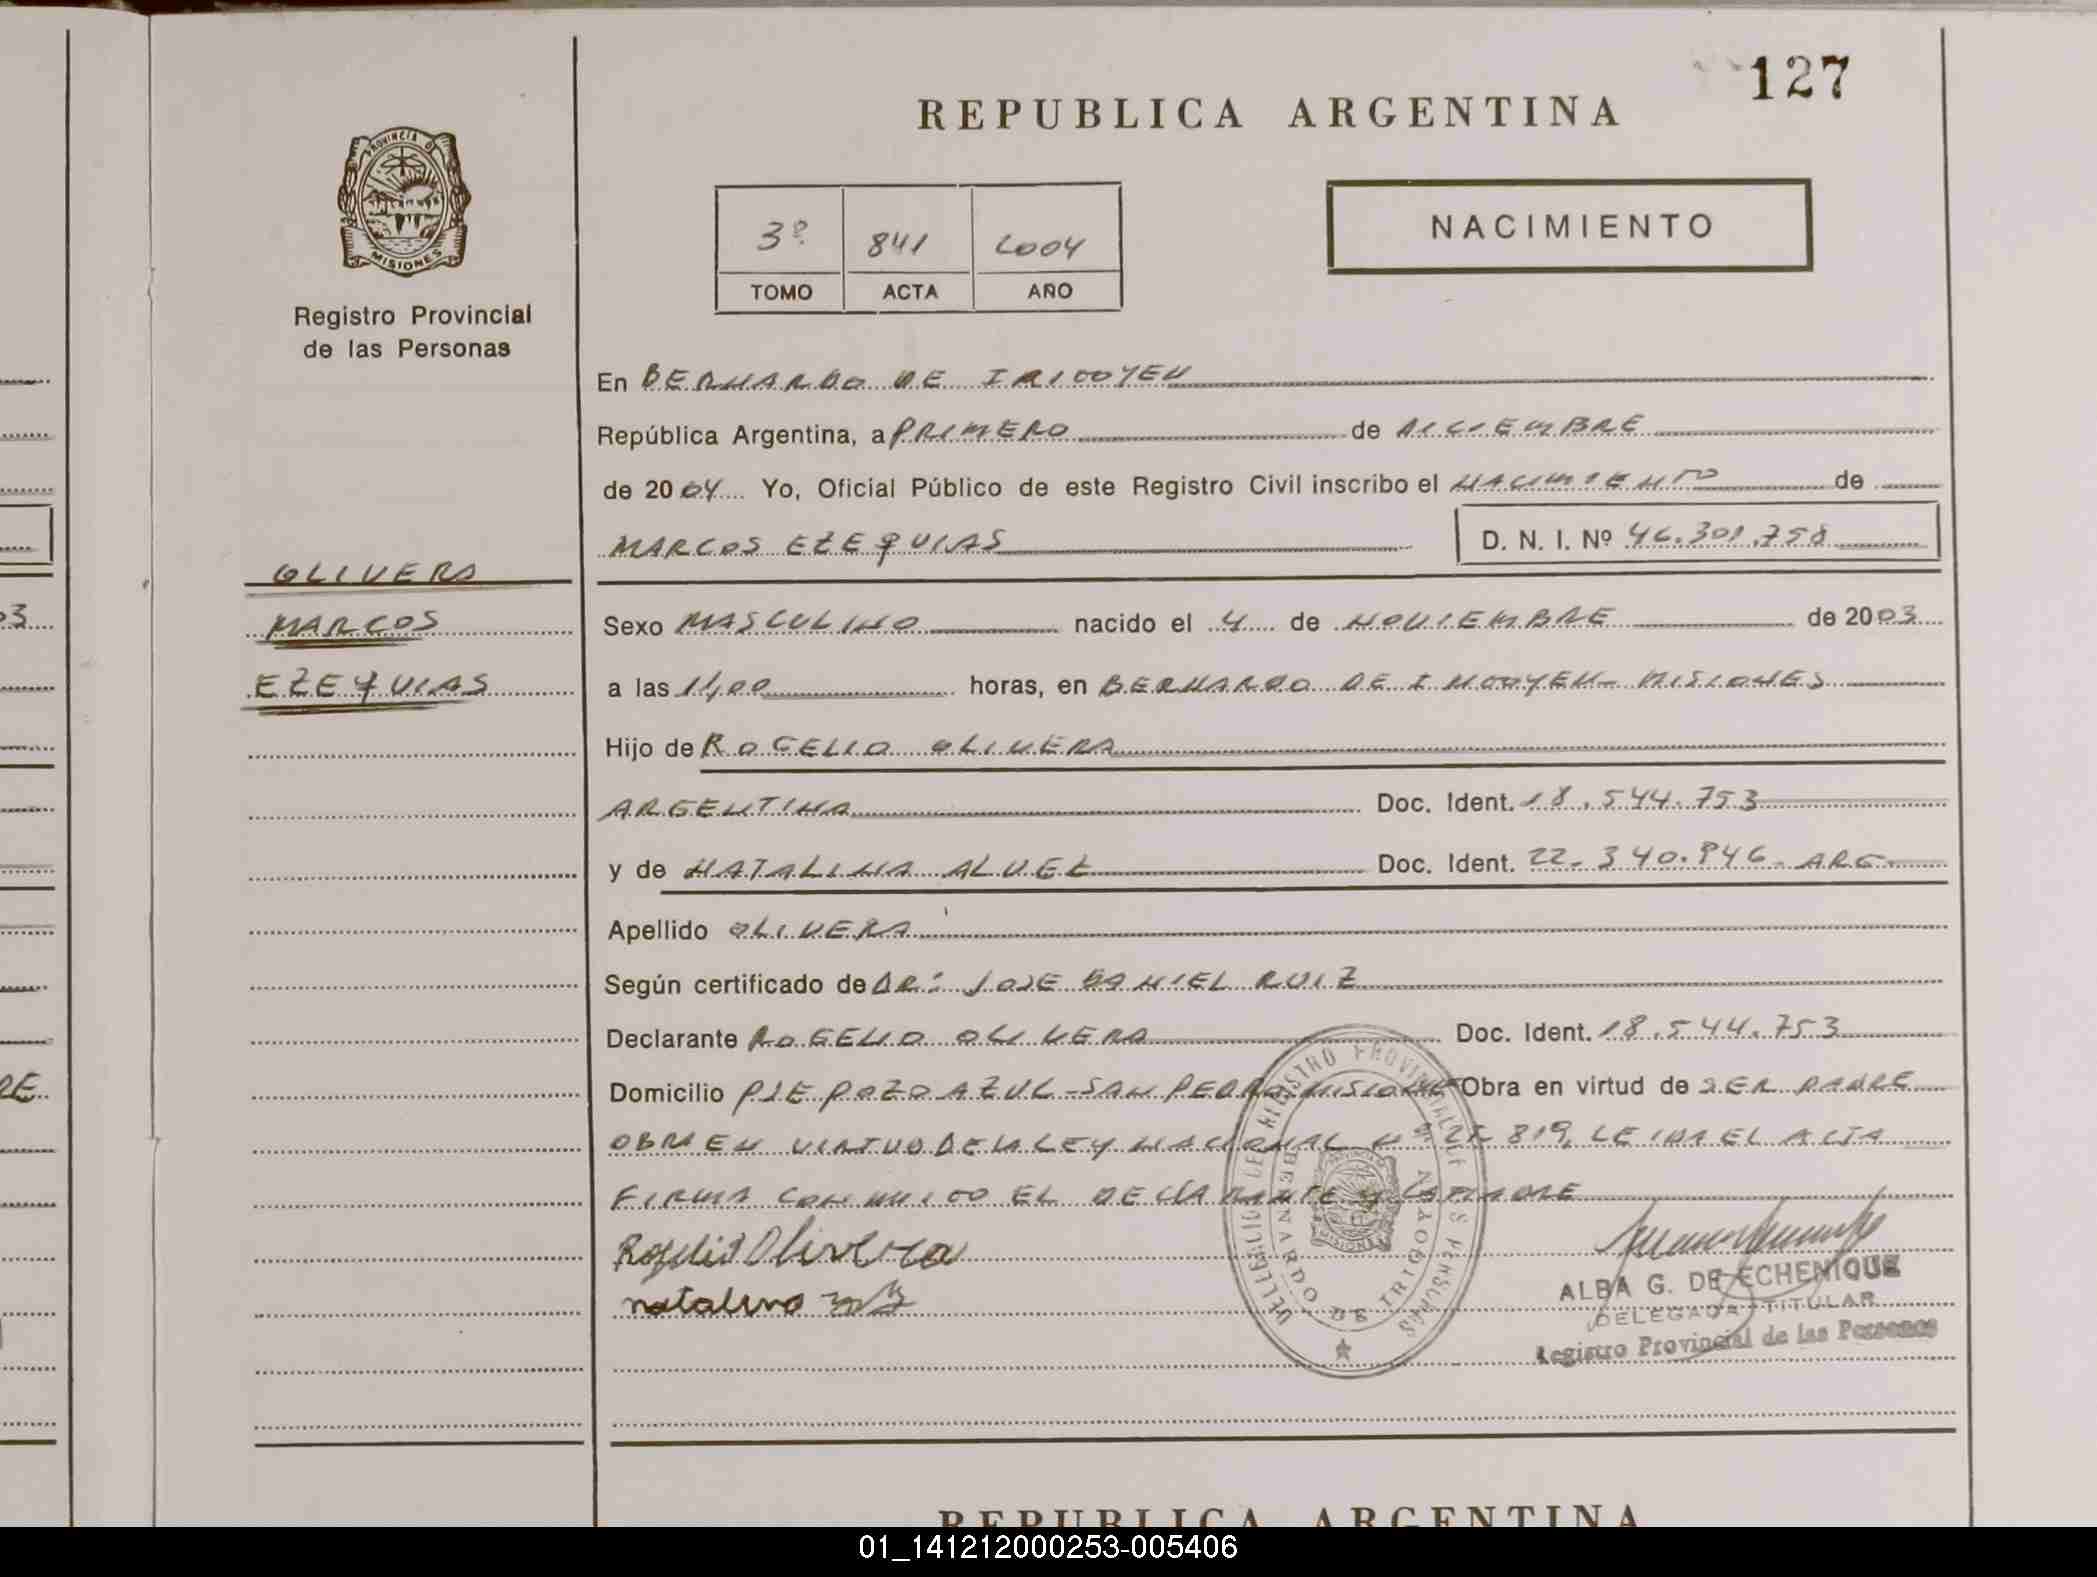 127
REPUBLICA ARGENTINA
PROVINCIA DE
MISIONES
Registro Provincial
de las Personas
3º 841 2004
TOMO ACTA AÑO
NACIMIENTO
En BERNARDO DE IRIGOYEN
República Argentina, a PRIMERO de DICIEMBRE
de 2004 Yo, Oficial Público de este Registro Civil inscribo el NACIMIENTO de
MARCOS EZEQUIAS D. N. I. Nº 46.301.758
OLIVERA
MARCOS
EZEQUIAS
Sexo MASCULINO nacido el 4 de NOVIEMBRE de 2003
a las 11,00 horas, en BERNARDO DE IRIGOYEN - MISIONES
Hijo de ROGELIO OLIVERA
ARGENTINA Doc. Ident. 18.544.753
y de NATALINA ALVEZ Doc. Ident. 22.340.946 - ARG.
Apellido OLIVERA
Según certificado de DR: JOSE DANIEL RUIZ
Declarante ROGELIO OLIVERA Doc. Ident. 18.544.753
Domicilio PJE POZO AZUL - SAN PEDRO MISIONES Obra en virtud de SER PADRE
OBRA EN VIRTUD DE LA LEY NACIONAL Nº 25.819, LEIDA EL ACTA
FIRMA CONMIGO EL DECLARANTE Y LA MADRE
Rogelio Olivera
natalina
REGISTRO PROVINCIAL DE LAS PERSONAS
BERNARDO DE IRIGOYEN
MISIONES
ALBA G. DE ECHENIQUE
DELEGADA TITULAR
Registro Provincial de las Personas
REPUBLICA ARGENTINA
01_141212000253-005406